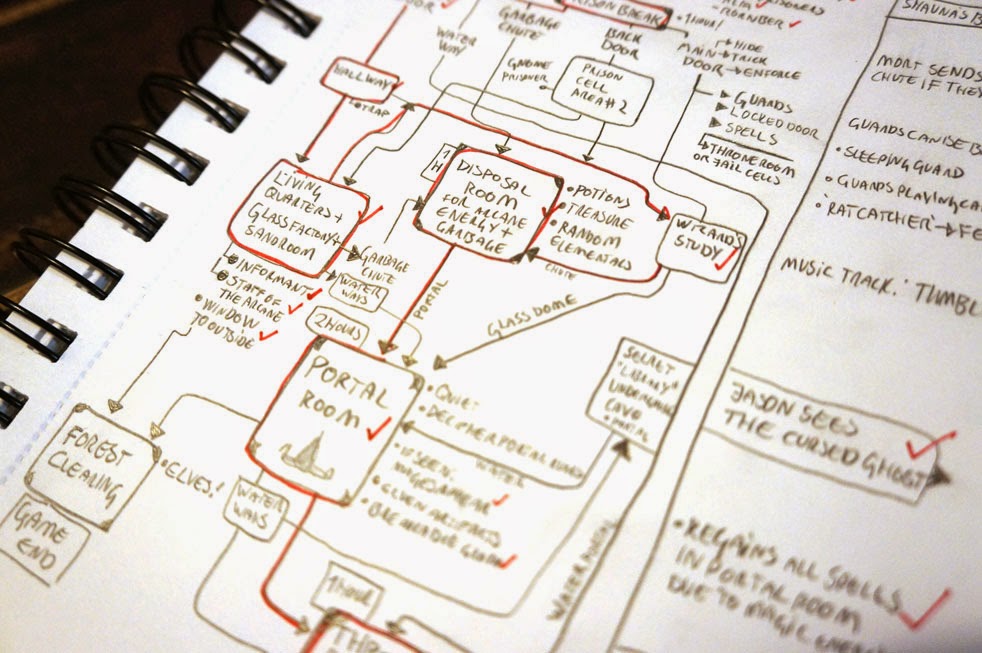 DOOR
GARBAGE
CHUTE
PRISON BREAK
• 1 HOUR
WATER
WAY
BACK
DOOR
MAIN
DOOR
HIDE
TRICK
ENFORCE
GNOME
PRISONER
PRISON
CELL
AREA #2
GUARDS
LOCKED DOOR
SPELLS
THRONE ROOM
OR JAIL CELLS
HALLWAY
• TRAP
LIVING
QUARTERS +
GLASS FACTORY +
SANDROOM
1
H
DISPOSAL
ROOM
FOR ARCANE
ENERGY +
GARBAGE
• POTIONS
• TREASURE
• RANDOM
ELEMENTALS
CHUTE
WIZARD'S
STUDY
GARBAGE
CHUTE
WATER
WAYS
• INFORMANT
• STAFF OF
THE ARCANE
• WINDOW
TO OUTSIDE
PORTAL
GLASS DOME
2 HOURS
PORTAL
ROOM
• QUIET
• DECIPHER PORTAL
• IF SEEN:
MAGES APPEAR
• ELVEN ARTIFACTS
WATER
SECRET
"LIBRARY"
CAVE
• PORTAL
FOREST
CLEARING
• ELVES!
GAME
END
WATER
WAYS
WATER
1 HOUR
THR
SHAUNA'S B
MORT SENDS
CHUTE IF THEY
GUARDS CAN BE B
• SLEEPING GUARD
• GUARDS PLAYING CA
• 'RATCATCHER' → FE
MUSIC TRACK: 'TUMBL
JASON SEES
THE CURSED GHOST
• REGAINS ALL SPELLS
IN PORTAL ROOM
DUE TO MAGIC